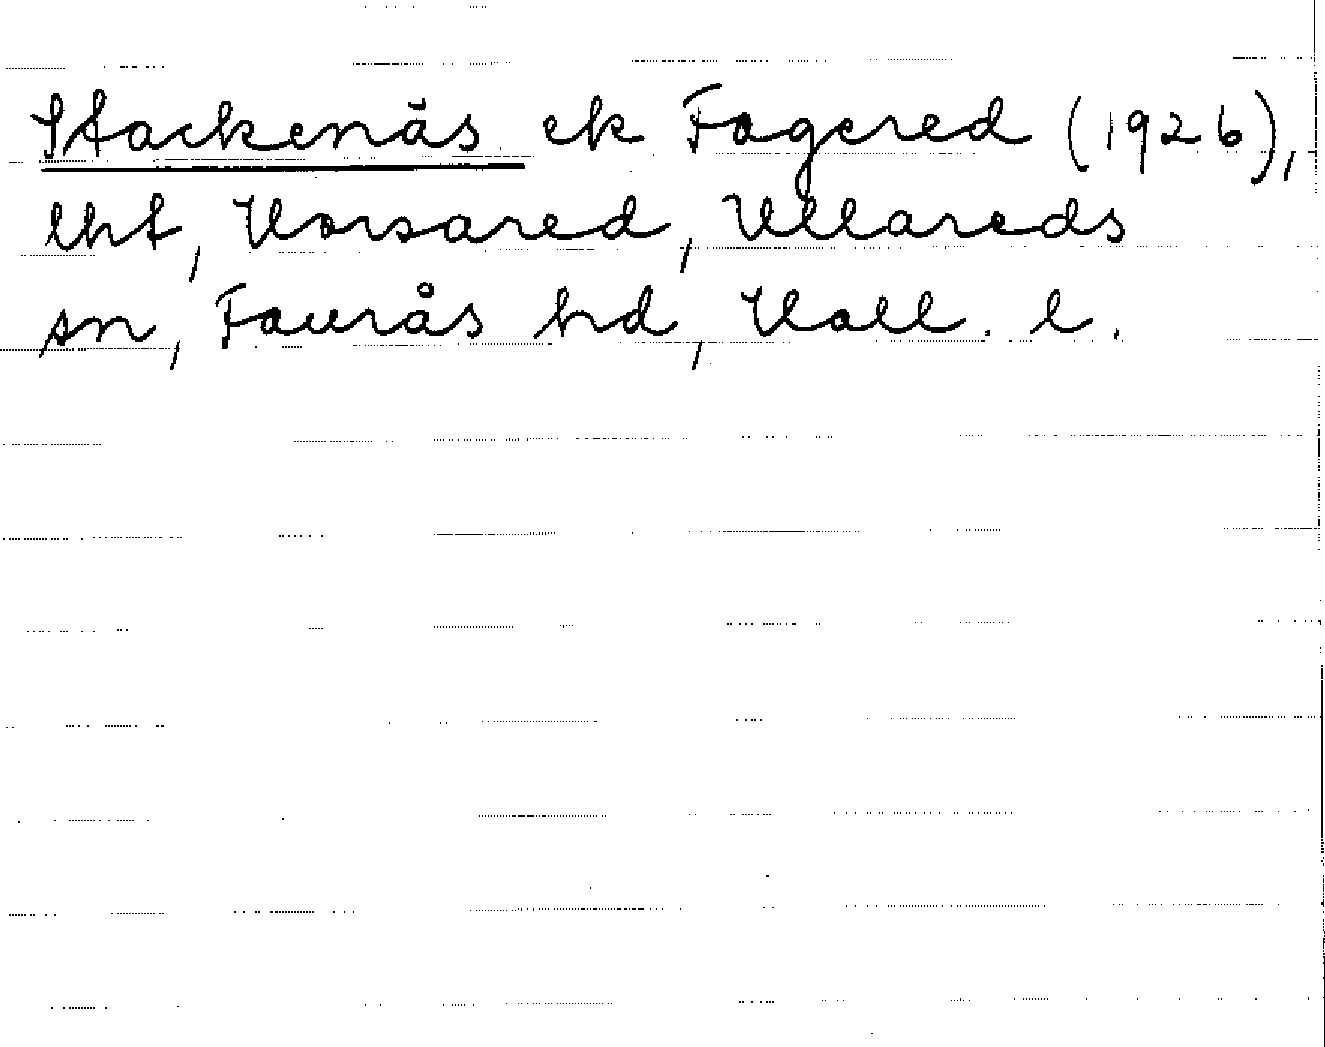 Stackenäs ek Fagered (1926),
lht, Horsared, Ullareds
sn, Faurås hd, Hall. l.